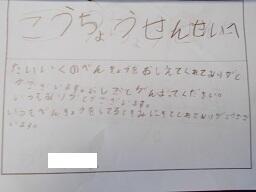 こうちょうせんせいへ
たいいくのべんきょうをおしえてくれてありがと
うございます。おしごとがんばてください。
いつもありがとうございます。
いつもべんきょうをしてるときみにきてくれてありがとうござ
います。